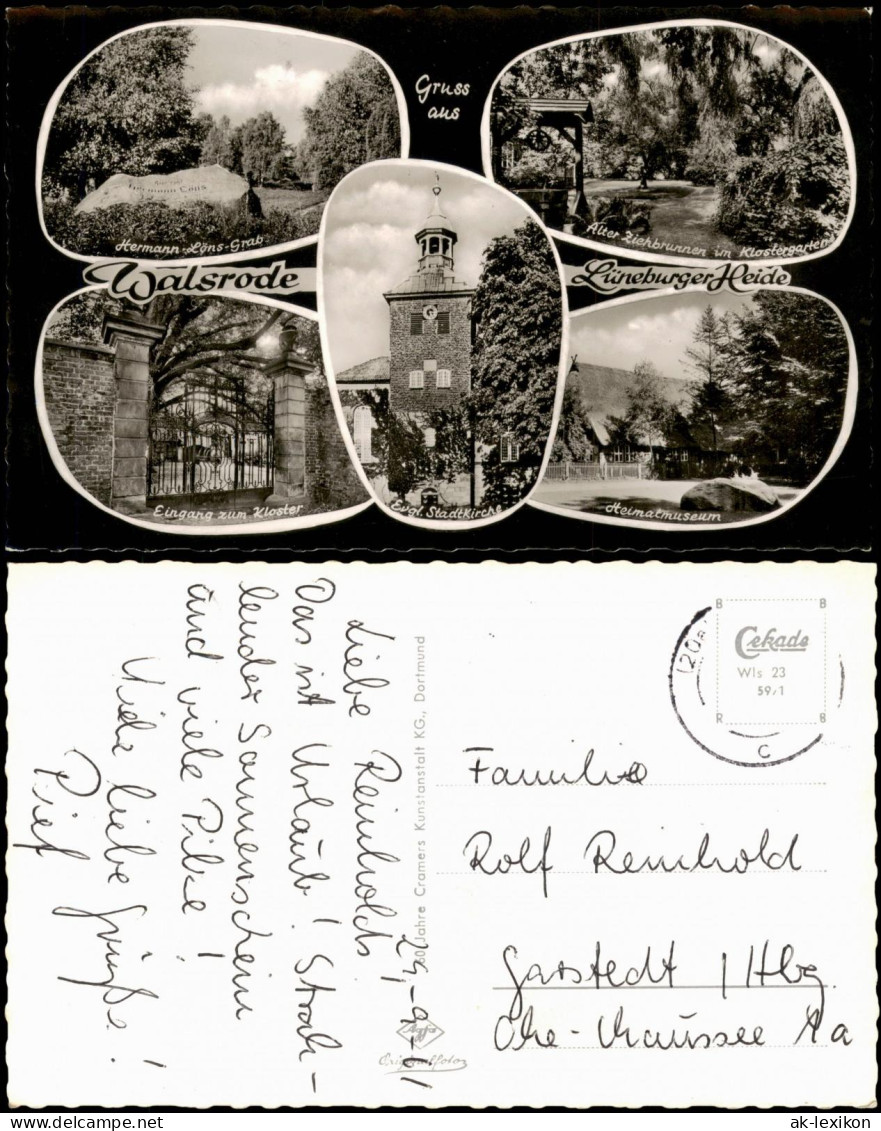 Gruss
aus
Hermann Löns
Hermann-Löns-Grab
Alter Ziehbrunnen im Klostergarten
Walsrode
Lüneburger Heide
Eingang zum Kloster
Evgl. Stadtkirche
Heimatmuseum
24.-9.-61
Liebe Reinholds!
Das ist Urlaub! Strah-
lender Sonnenschein
und viele Pilze!
Viele liebe Grüße!
60 Jahre Cramers Kunstanstalt KG., Dortmund
Agfa
Originalfoto
(20a
c
B B
Cekade
Wls 23
59/1
R B
Familie
Rolf Reinhold
Garstedt / Hbg.
Ohe-Chaussee 1a
ak-lexikon